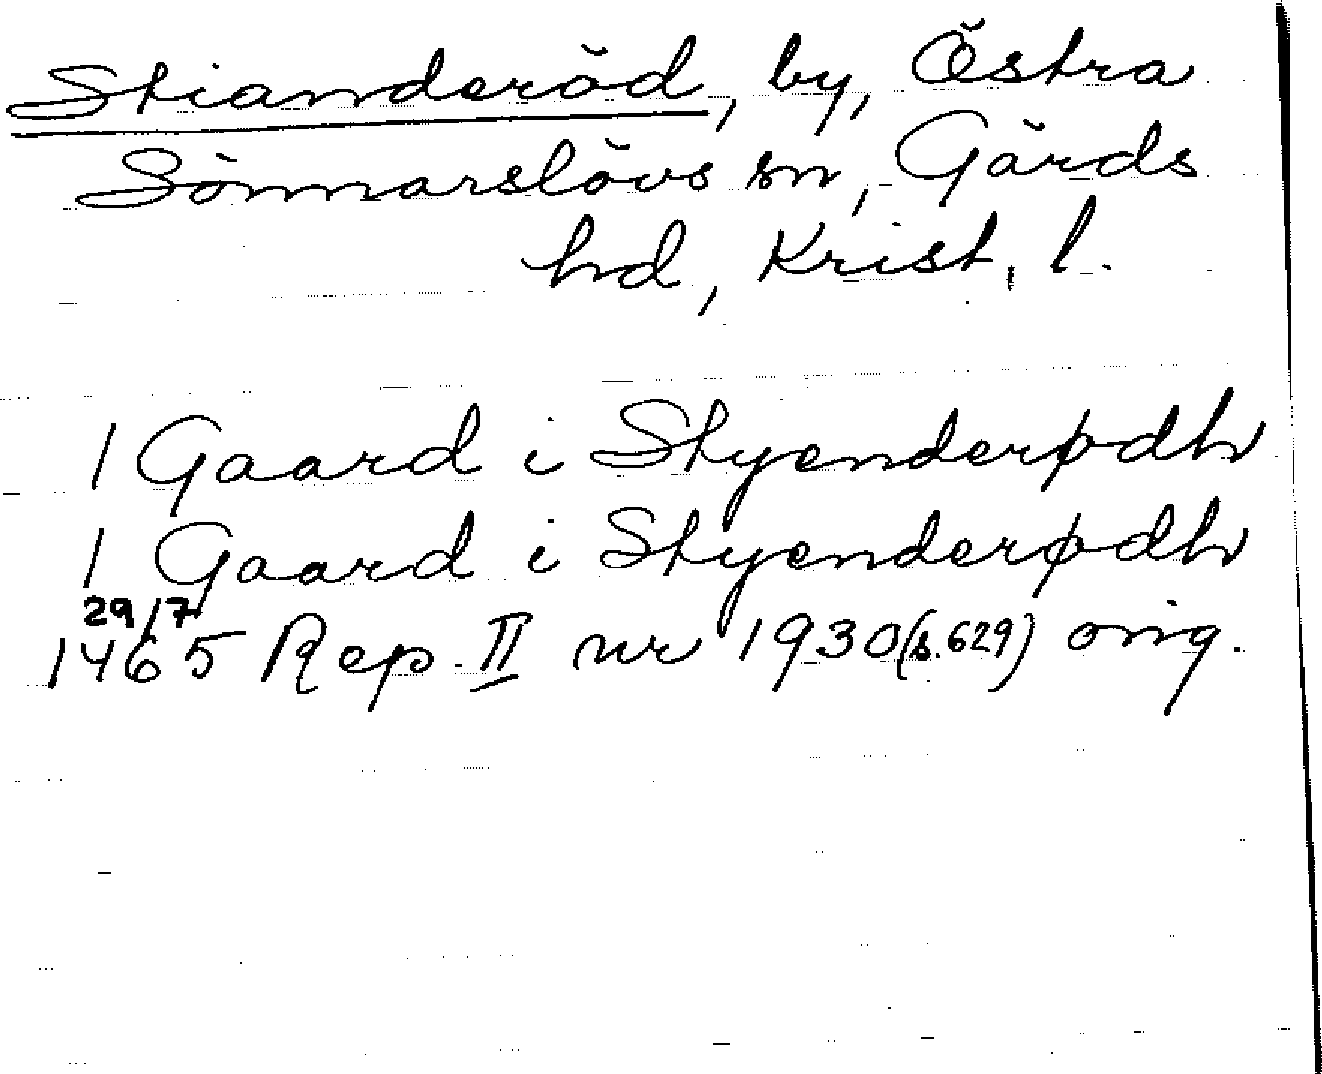 Stianderöd, by, Östra
Sönnarslövs sn, Gärds
hd, Krist. l.
1 Gaard i Styenderødh
1 Gaard i Styenderødh
29/7
1465 Rep. II nr 1930 (s. 629) orig.